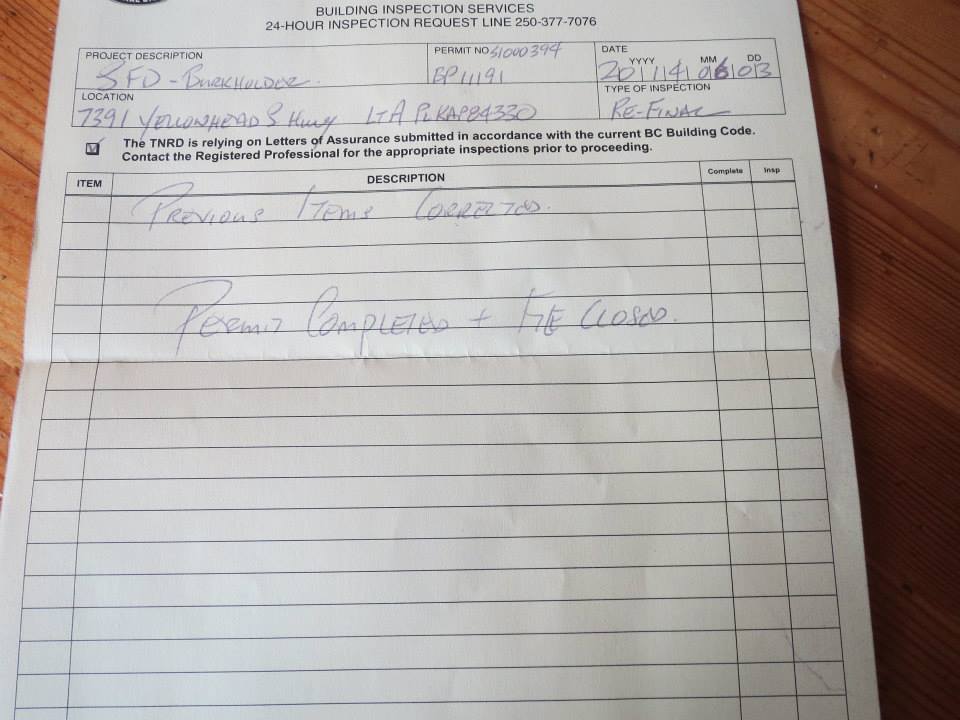 BUILDING INSPECTION SERVICES
24-HOUR INSPECTION REQUEST LINE 250-377-7076
PROJECT DESCRIPTION
SFD - BURKHOLDER.
PERMIT NO S1000394
BP11191
DATE
YYYY MM DD
2014 06 03
LOCATION
7391 YELLOWHEAD S Hwy Lt A PL KAP84330
TYPE OF INSPECTION
RE-FINAL
The TNRD is relying on Letters of Assurance submitted in accordance with the current BC Building Code.
Contact the Registered Professional for the appropriate inspections prior to proceeding.
ITEM DESCRIPTION Complete Insp
PREVIOUS ITEMS CORRECTED.
PERMIT COMPLETED + FILE CLOSED.